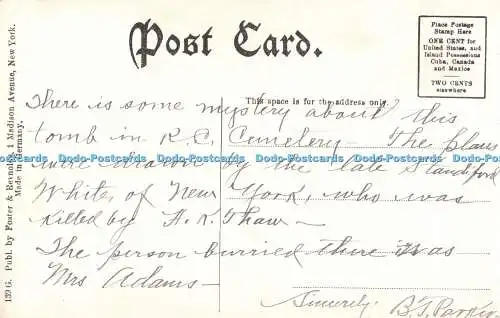 Post Card.
Place Postage
Stamp Here
ONE CENT for
United States, and
Island Possessions
Cuba, Canada
and Mexico
TWO CENTS
elsewhere
139 G. Publ. by Foster & Reynolds, 1 Madison Avenue, New York.
Made in Germany.
This space is for the address only.
There is some mystery about this
tomb in R.C. Cemetery - The plans
were drawn by the late Standford
White, of New York, who was
killed by H. K. Thaw -
The person burried there was
Mrs Adams -
Sincerely B.F.
Dodo-Postcards Dodo-Postcards Dodo-Postcards Dodo-Postcards Dodo-Postcards Dodo-Postcards